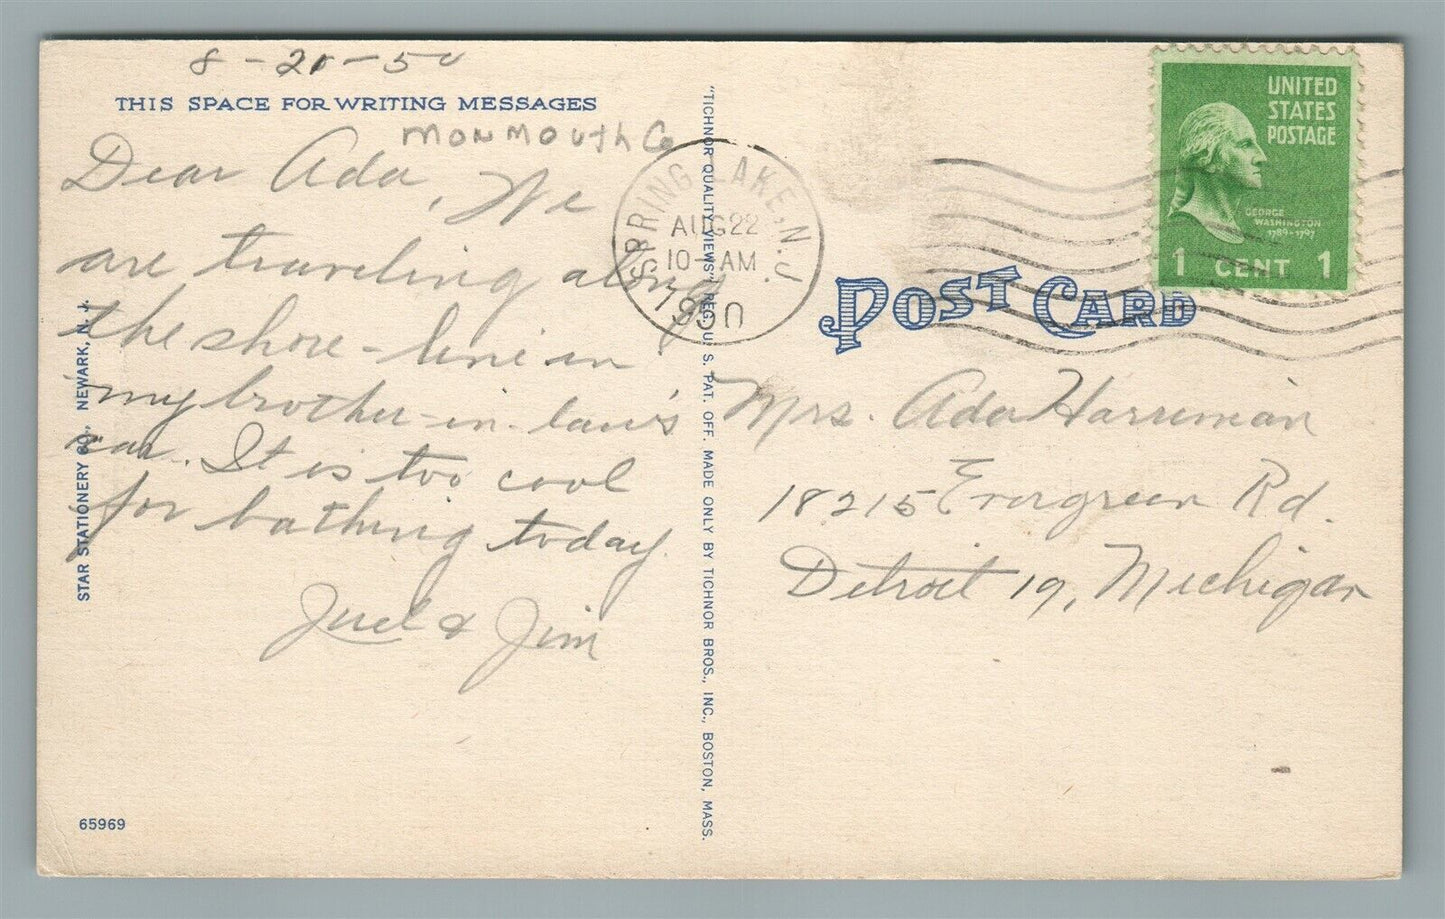 8-21-50
THIS SPACE FOR WRITING MESSAGES
MONMOUTH Co
Dear Ada, We
are traveling along
the shore-line in
my brother-in-law's
car. It is too cool
for bathing today.
Juel & Jim
STAR STATIONERY CO., NEWARK, N. J.
65969
"TICHNOR QUALITY VIEWS" REG. U. S. PAT. OFF. MADE ONLY BY TICHNOR BROS., INC., BOSTON, MASS.
SPRING LAKE, N.J.
AUG 22
10-AM
1950
UNITED
STATES
POSTAGE
GEORGE
WASHINGTON
1789-1797
1 CENT 1
POST CARD
Mrs. Ada Harriman
18215 Evergreen Rd.
Detroit 19, Michigan